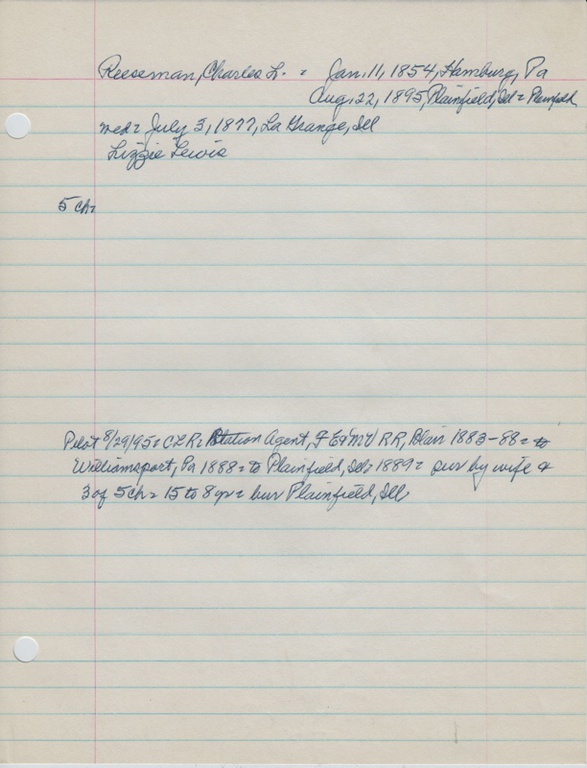 Reeseman, Charles L. = Jan. 11, 1854, Hamburg, Pa
Aug. 22, 1895, Plainfield, Ill = Plainfield
med = July 3, 1877, La Grange, Ill
Lizzie Lewis
5 ch =
Pilot 8/29/95 = CLR = Station Agent, F E & MV RR, Blair 1883-88 = to
Williamsport, Pa 1888 = to Plainfield, Ill 1889 = sur by wife &
3 of 5 ch = 15 to 8 yr = bur Plainfield, Ill